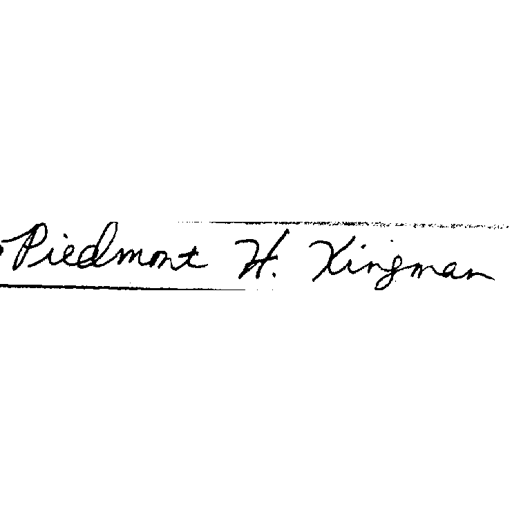 Piedmont H. Kingman